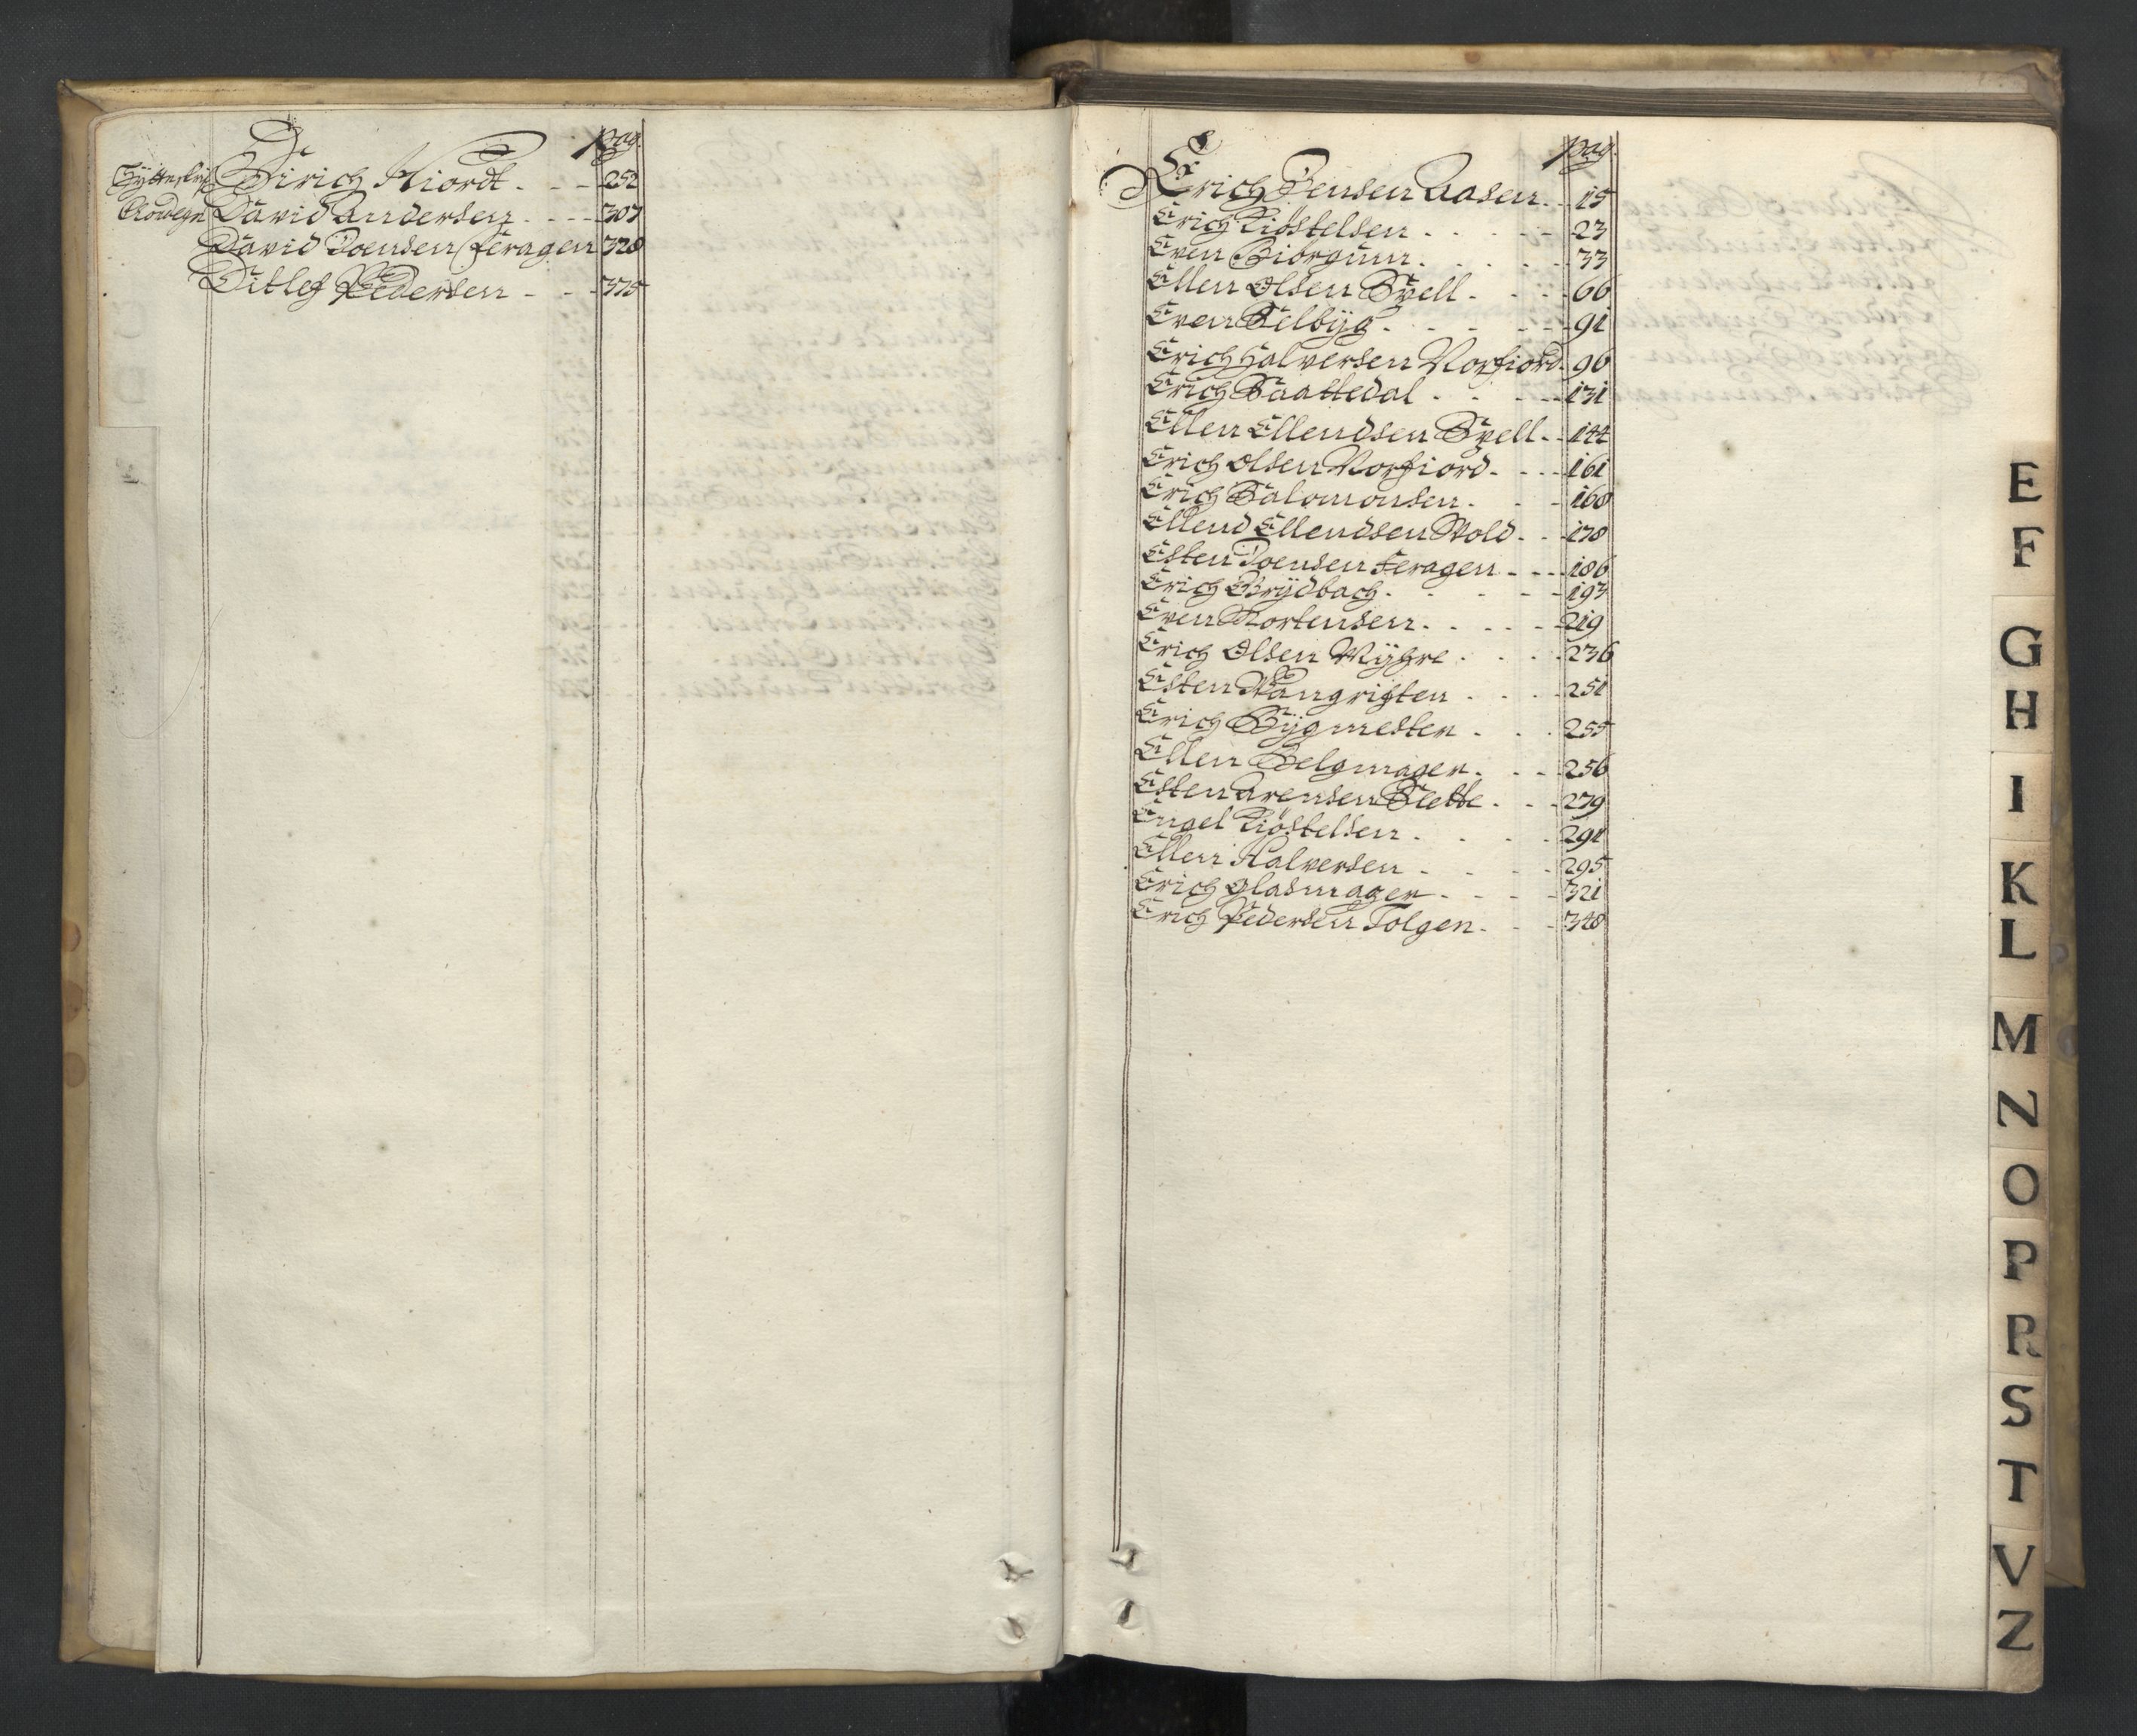 D
pag
Dirich Hiordt - - - 252
David Andersen - - - 307
David Joensen Feragen 328
Ditlef Pedersen - - - 375
E
pag
Erich Jensen Aasen - - 15
Erich Kiöstelsen - - - 23
Even Biörguun - - - 33
Ellen Olsen Svell - - - 66
Even Selbyg - - - 91
Erich Halversen Norfiord - 96
Erich Saattedal - - - 131
Ellen Ellendsen Svell - - 144
Erich Olsen Norfiord - - - 161
Erich Salomonsen - - - 168
Ellend Ellendsen Wold - - 178
Esten Joensen Feragen - - - 186
Erich Brydbach - - - 193
Even Mortensen - - - 219
Erich Olsen Myhre - - - 236
Esten Wangriften - - - 251
Erich Bygmester - - - 255
Ellen Belgmager - - - 256
Esten Arensen Slette - - - 279
Engel Kiöstelsen - - - 291
Ellen Halversen - - - 295
Erich Glasmager - - - 321
Erich Pedersen Tolgen - - - 348
E
F
G
H
I
K
L
M
N
O
P
R
S
T
V
Z